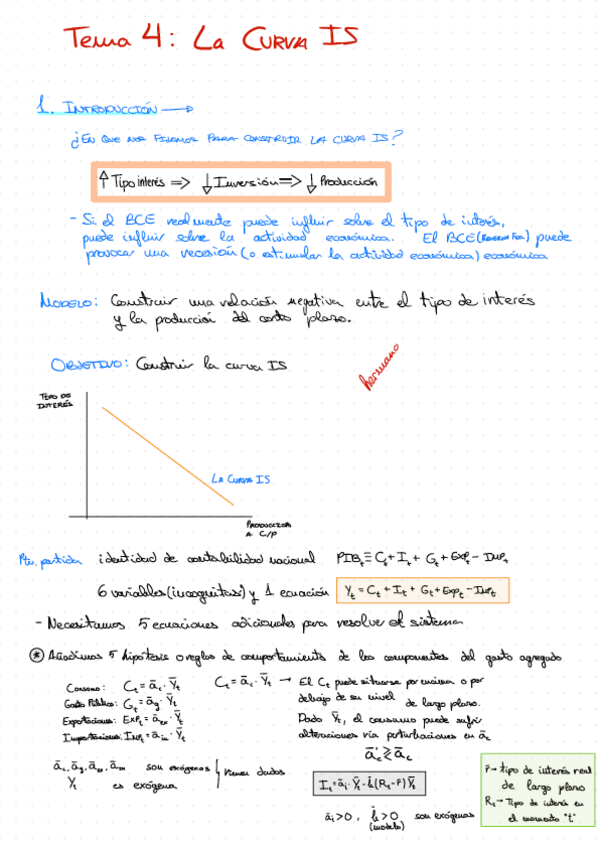 Tema 4: La Curva IS
1. Introducción →
¿En que nos fijamos para construir la curva IS?
↑ Tipo interés => ↓ Inversión => ↓ Producción
- Si el BCE realmente puede influir sobre el tipo de interés,
puede influir sobre la actividad económica. El BCE puede
provocar una recesión (o estimular la actividad económica) económica
Modelo: Construir una relación negativa entre el tipo de interés
y la producción del corto plazo.
Objetivo: Construir la curva IS
hermano
Tipo de
interés
La Curva IS
Produccion
a c/p
Pto. partida identidad de contabilidad nacional PIBt ≡ Ct + It + Gt + Expt - Impt
6 variables (incognitas) y 1 ecuación Yt = Ct + It + Gt + Expt - Impt
- Necesitamos 5 ecuaciones adicionales para resolver el sistema
* Añadimos 5 hipótesis o reglas de comportamiento de los componentes del gasto agregado
Consumo: Ct = āc · Ȳt
Gasto Público: Gt = āg · Ȳt
Exportaciones: Expt = āex · Ȳt
Importaciones: Impt = āim · Ȳt
Ct = āc · Ȳt → El Ct puede situarse por encima o por
debajo de su nivel de largo plazo.
Dado Ȳt, el consumo puede sufrir
alteraciones vía perturbaciones en āc
āc' ≷ āc
āc, āg, āex, āim son exógenas
Ȳt es exógena
vienen dados
It = āi · Ȳt - b̄ (Rt - r̄) Ȳt
āi > 0, b̄ > 0 son exógenas
(modelo)
r̄ → tipo de interés real
de largo plazo
Rt → Tipo de interés en
el momento "t"